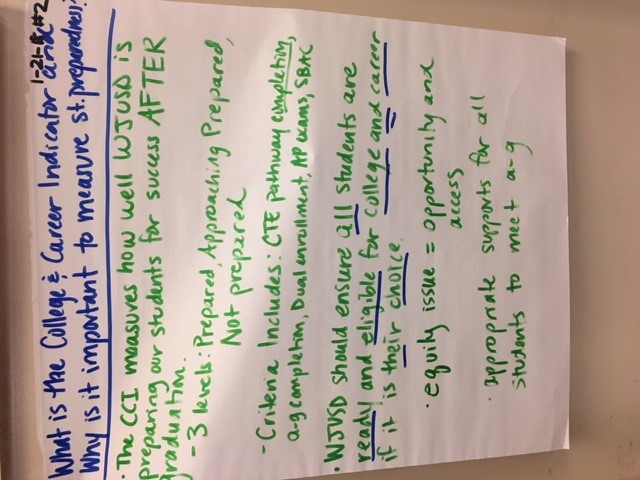 1-21-18 #2
What is the College & Career Indicator and
Why is it important to measure st. preparedness?
· The CCI measures how well WJUSD is
preparing our students for success AFTER
graduation.
- 3 levels: Prepared, Approaching Prepared,
Not prepared
- Criteria Includes: CTE pathway completion,
a-g completion, Dual enrollment, AP exams, SBAC
· WJUSD should ensure all students are
ready and eligible for college and career
if it is their choice.
· equity issue = opportunity and
access
· appropriate supports for all
students to meet a-g